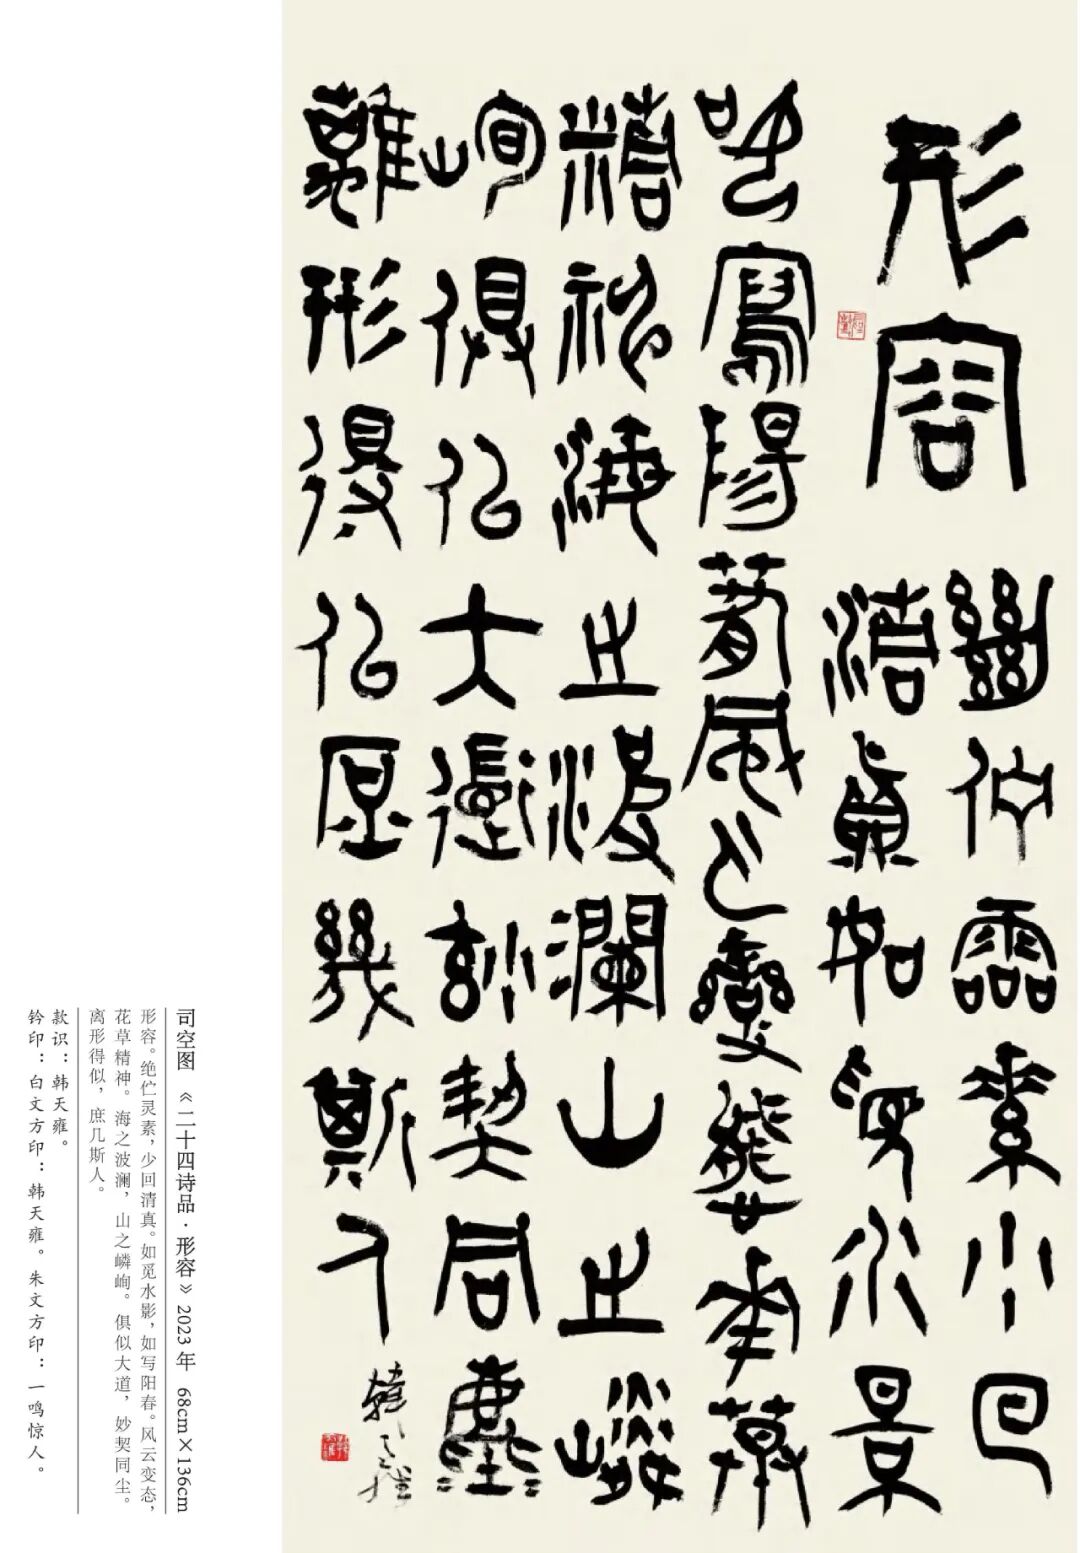 形容
絕佇靈素少回
清真如覓水景
如寫陽春風云變態華草
精神海之波瀾山之嶙
峋俱似大道妙契同塵
離形得似庶幾斯人
韓天雍
司空图 《二十四诗品·形容》2023年 68cm×136cm
形容。绝伫灵素,少回清真。如觅水影,如写阳春。风云变态,
花草精神。海之波澜,山之嶙峋。俱似大道,妙契同尘。
离形得似,庶几斯人。
款识:韩天雍。
钤印:白文方印:韩天雍。朱文方印:一鸣惊人。